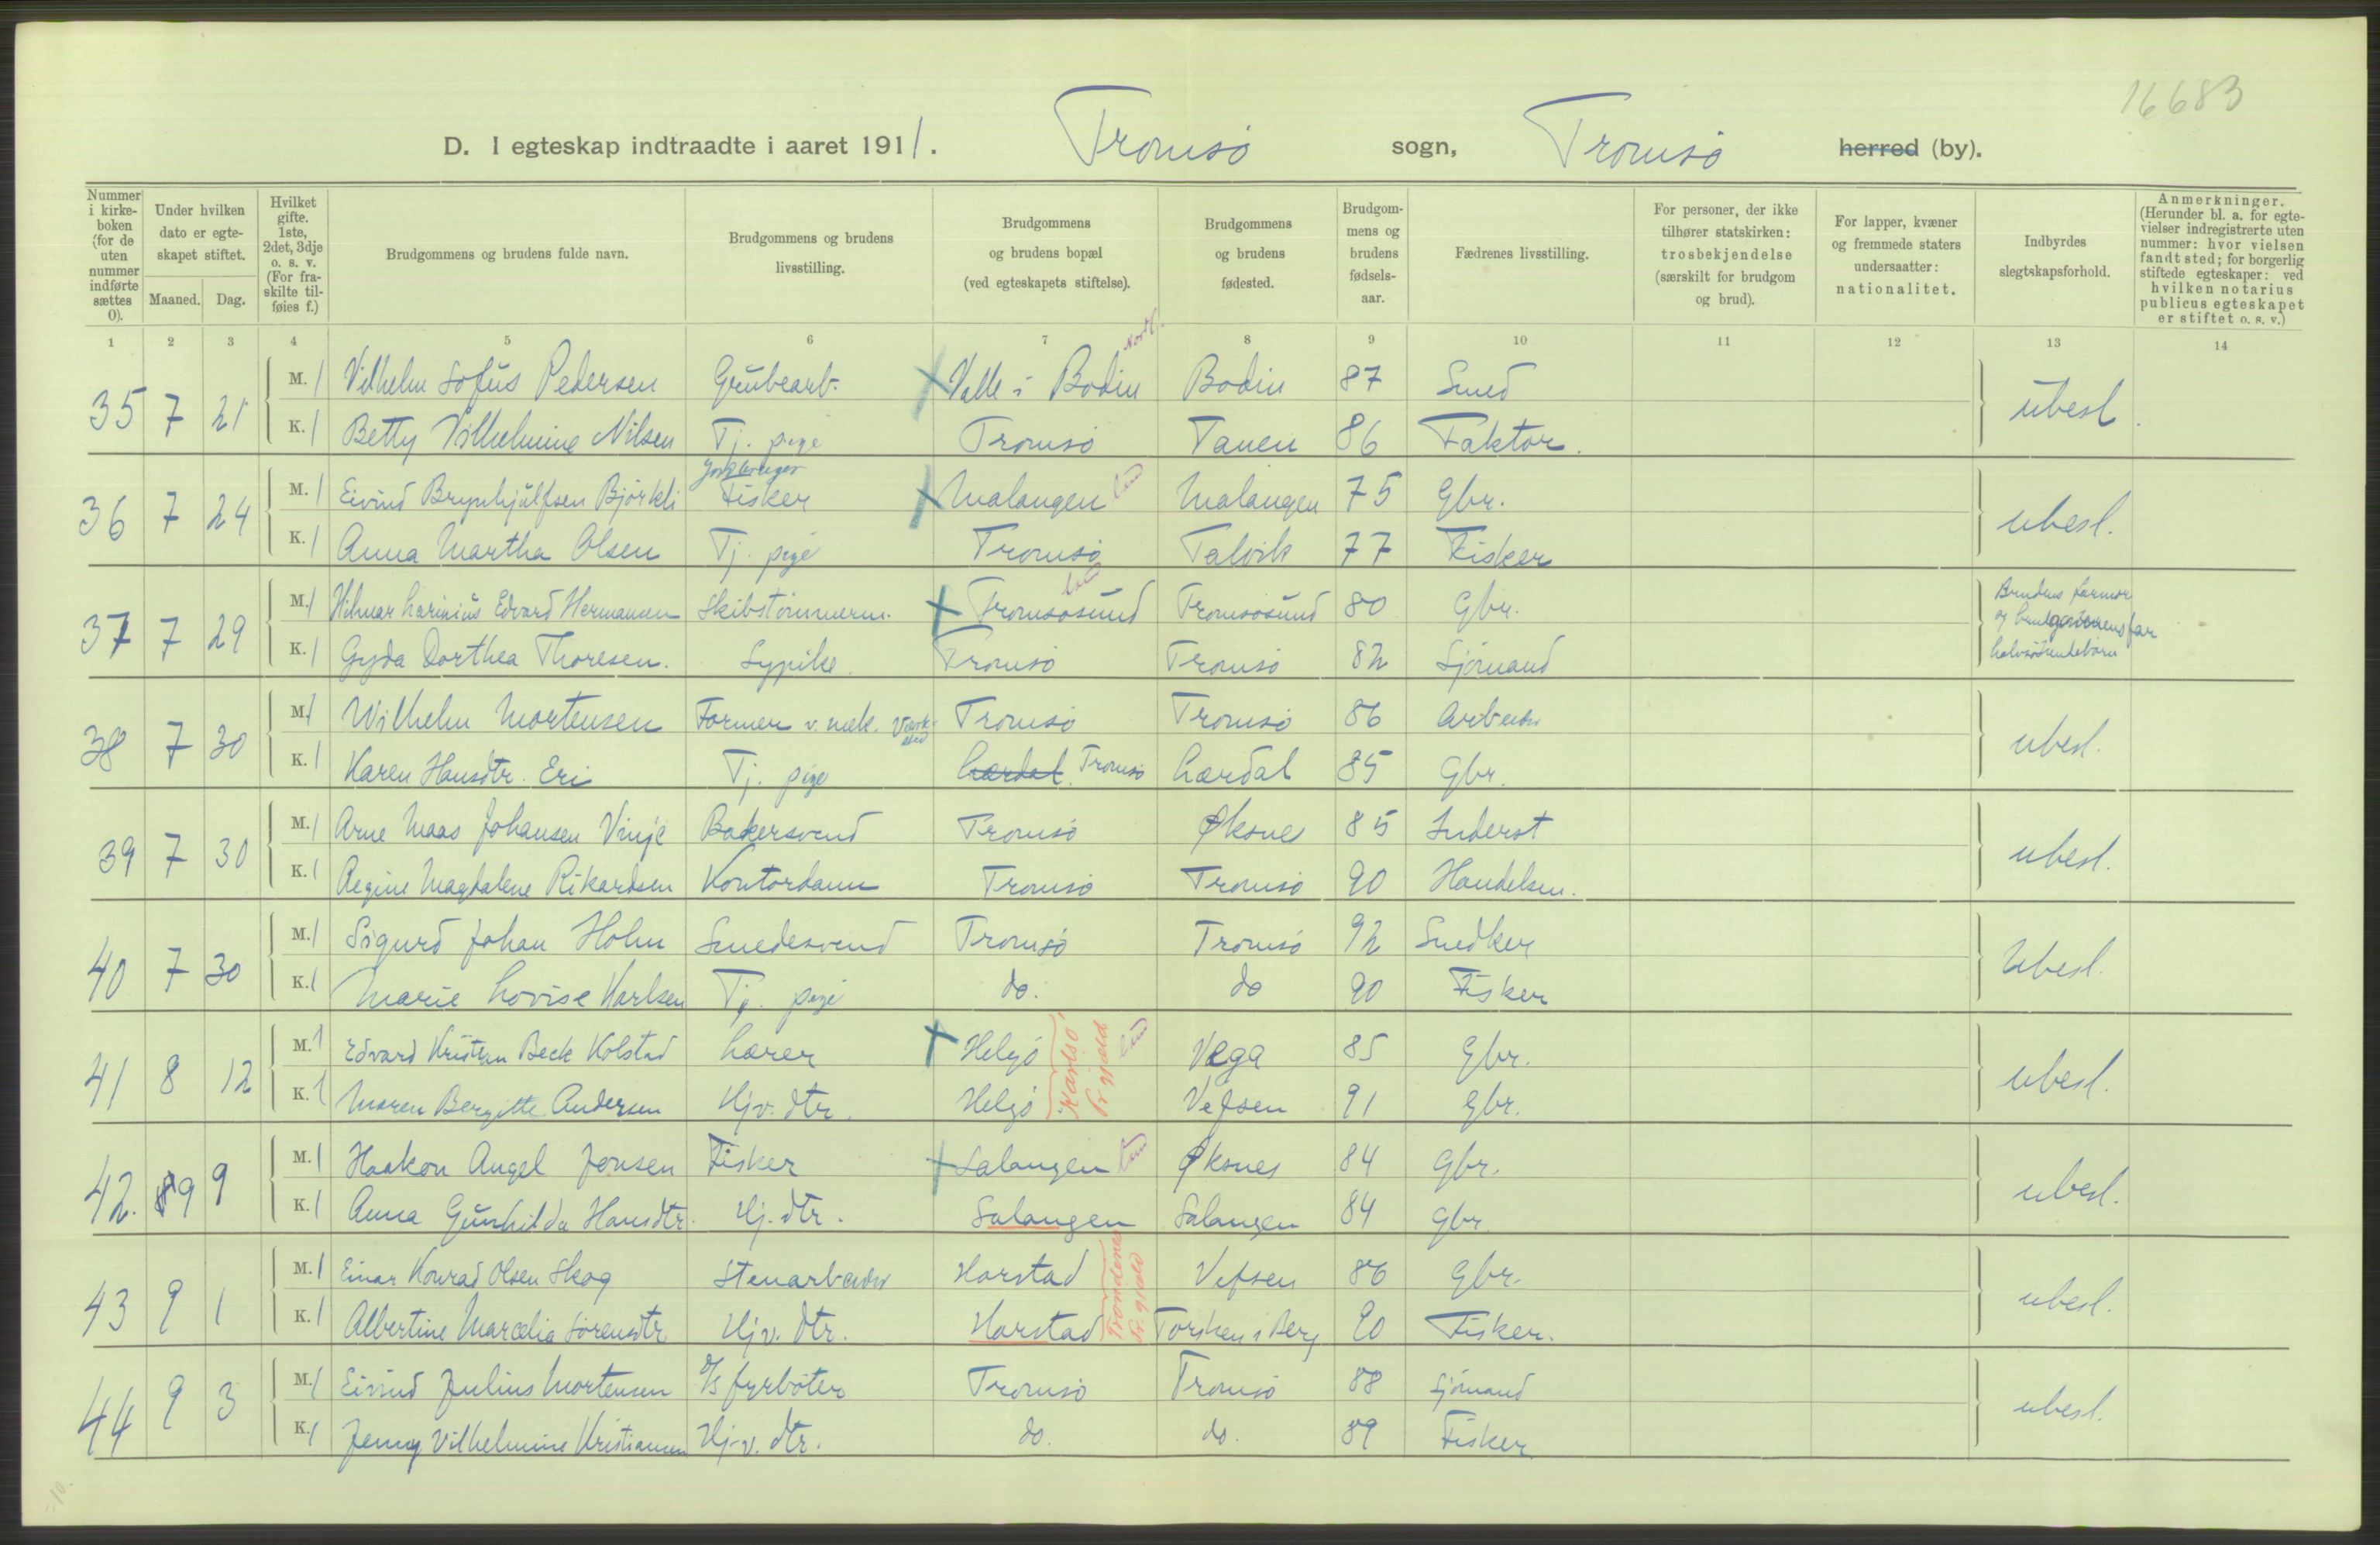 16683
D. I egteskap indtraadte i aaret 1911. Tromsö sogn, Tromsö herred (by).
Nummer i kirkeboken (for de uten nummer indførte sættes 0).
Under hvilken dato er egteskapet stiftet.
Maaned. Dag.
Hvilket gifte. 1ste, 2det, 3dje o. s. v. (For fraskilte tilføies f.)
Brudgommens og brudens fulde navn.
Brudgommens og brudens livsstilling.
Brudgommens og brudens bopæl (ved egteskapets stiftelse).
Brudgommens og brudens fødested.
Brudgommens og brudens fødselsaar.
Fædrenes livsstilling.
For personer, der ikke tilhører statskirken: trosbekjendelse (særskilt for brudgom og brud).
For lapper, kvæner og fremmede staters undersaatter: nationalitet.
Indbyrdes slegtskapsforhold.
Anmerkninger. (Herunder bl. a. for egtevielser indregistrerte uten nummer: hvor vielsen fandt sted; for borgerlig stiftede egteskaper: ved hvilken notarius publicus egteskapet er stiftet o. s. v.)
1 2 3 4 5 6 7 8 9 10 11 12 13 14
35 7 21 M. 1 Vilhelm Sofus Pedersen Grubearb. Valle i Bodin Nordl. Bodin 87 Smed ubesl.
K. 1 Betty Vilhelmine Nilsen Tj. pige Tromsö Tanen 86 Faktor.
36 7 24 M. 1 Eivind Brynhjulfsen Björkli Jordbruger Fisker Malangen Malangen 75 Gbr. ubesl.
K. 1 Anna Martha Olsen Tj. pige Tromsö Talvik 77 Fisker
37 7 29 M. 1 Hilmar Larinius Edvard Hermansen Skibstömmerm. Tromsösund Tromsösund 80 Gbr. Brudens farmor og brudgommens far halvsöskendebörn
K. 1 Gyda Dorthea Thoresen. Sypike. Tromsö Tromsö 82 Sjömand
38 7 30 M. 1 Wilhelm Mortensen Former v. mek. Værksted Tromsö Tromsö 86 Arbeider ubesl.
K. 1 Karen Hansdtr. Eri Tj. pige Lærdal Tromsö Lærdal 85 Gbr.
39 7 30 M. 1 Arne Maas Johansen Vinje Bakersvend Tromsö Øksnes 85 Inderst ubesl.
K. 1 Regine Magdalene Rikardsen Kontordame Tromsö Tromsö 90 Handelsm.
40 7 30 M. 1 Sigurd Johan Holm Smedesvend Tromsö Tromsö 92 Snedker Ubesl.
K. 1 Marie Lovise Karlsen Tj. pige do. do 90 Fisker
41 8 12 M. 1 Edvard Kristian Beck Kolstad Lærer Helgö Karlsö Pr.gjæld Vega 85 Gbr. ubesl.
K. 1 Maren Bergitte Andersen Hjv. dtr. Helgö Vefsen 91 Gbr.
42. 9 9 M. 1 Haakon Angel Jensen Fisker Salangen Øksnes 84 Gbr. ubesl.
K. 1 Anna Gunhilda Hansdtr. Hj. dtr. Salangen Salangen 84 Gbr.
43 9 1 M. 1 Einar Konrad Olsen Skog Stenarbeider Harstad Trondenes Pr. gjæld Vefsen 86 Gbr. ubesl.
K. 1 Albertine Marcelia Sörensdtr Hjv. dtr. Harstad Torsken i Berg 90 Fisker.
44 9 3 M. 1 Eivind Julius Mortensen D/S fyrböter Tromsö Tromsö 88 Sjömand ubesl.
K. 1 Jenny Vilhelmine Kristiansen Hj.v. dtr. do. do. 89 Fisker